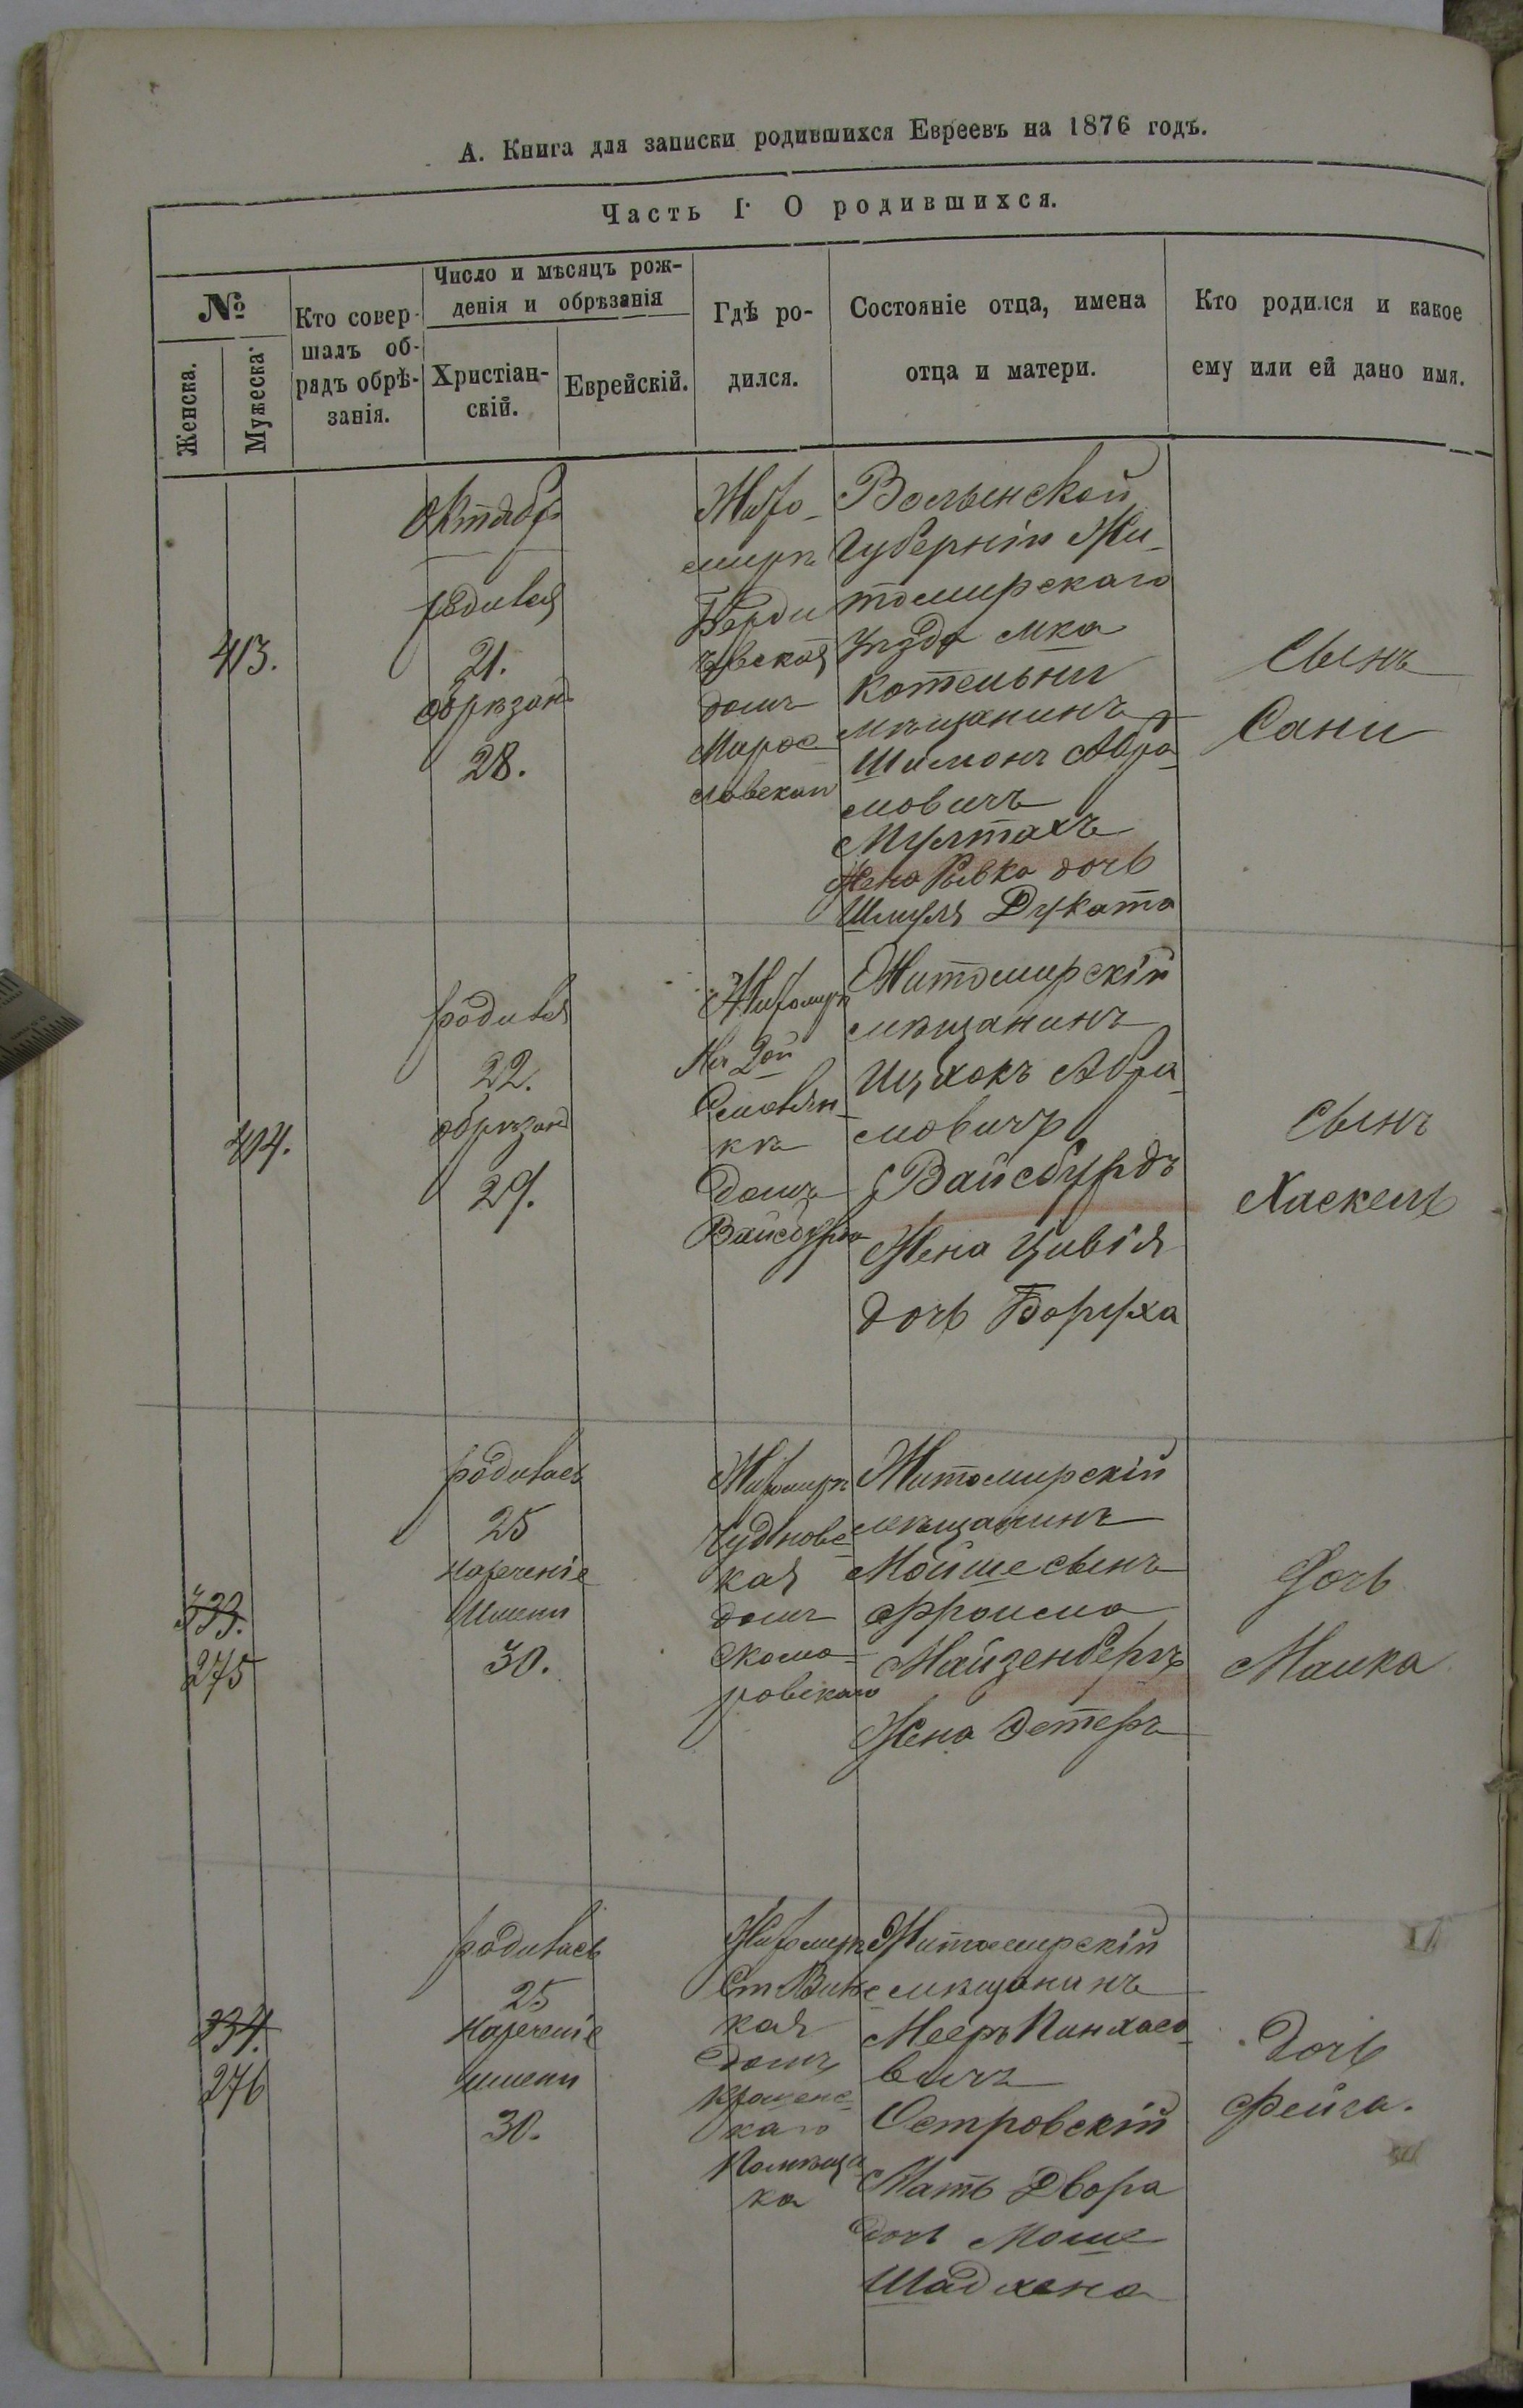 А. Книга для записки родившихся Евреевъ на 1876 годъ.
Часть I. О родившихся.
№
Женска.
Мужеска.
Кто совер-
шалъ об-
рядъ обрѣ-
занія.
Число и мѣсяцъ рож-
денія и обрѣзанія
Христіан-
скій.
Еврейскій.
Гдѣ ро-
дился.
Состояніе отца, имена
отца и матери.
Кто родился и какое
ему или ей дано имя.
413.
Октябр
родився
21.
обрѣзанъ
28.
Жито-
мирѣ
Берди
чевская
домъ
Мирос
лавскаго
Волынской
Губерніи Жи-
томирскаго
Уѣзда мка
Котельни
мѣщанинъ
Шимонъ Абра-
мовичъ
Мултахъ
Жена Рывка дочь
Шмуля Дуката
Сынъ
Сани
414.
родився
22.
обрѣзанъ
29.
Житомирѣ
На 2ой
Смолян-
кѣ
домъ
Вайсбурда
Житомирскій
мѣщанинъ
Ицхокъ Абра-
мовичъ
Вайсбурдъ
Жена Цивія
дочь Боруха
Сынъ
Хаскель
333.
275
родилась
25
нареченіе
Имени
30.
Житомирѣ
Чудновс
кая
домъ
Скомо-
ровскаго
Житомирскій
мѣщанинъ
Мойше сынъ
Фроима
Майзенбергъ
Жена Этеръ
Дочь
Малка
334.
276
родилась
25
Нареченіе
имени
30.
Житомирѣ
Ст Вилс
кая
домъ
скаго
Помѣщи
ка
Житомирскій
мѣщанинъ
Мееръ Пинхасо-
вичъ
Островскій
Мать Двора
дочь Моше
Шадхена
Дочь
Фейга.